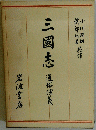 小川環樹
金田純一郎 訳
三國志
通俗演義
岩波書店